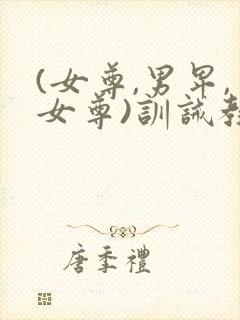 (女尊,男卑,
女尊)訓誡教
唐季禮